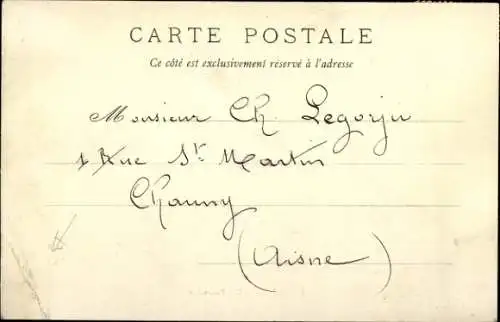 CARTE POSTALE
Ce côté est exclusivement réservé à l'adresse
Monsieur Ch. Legorju
1 Rue St Martin
Chauny
(Aisne)